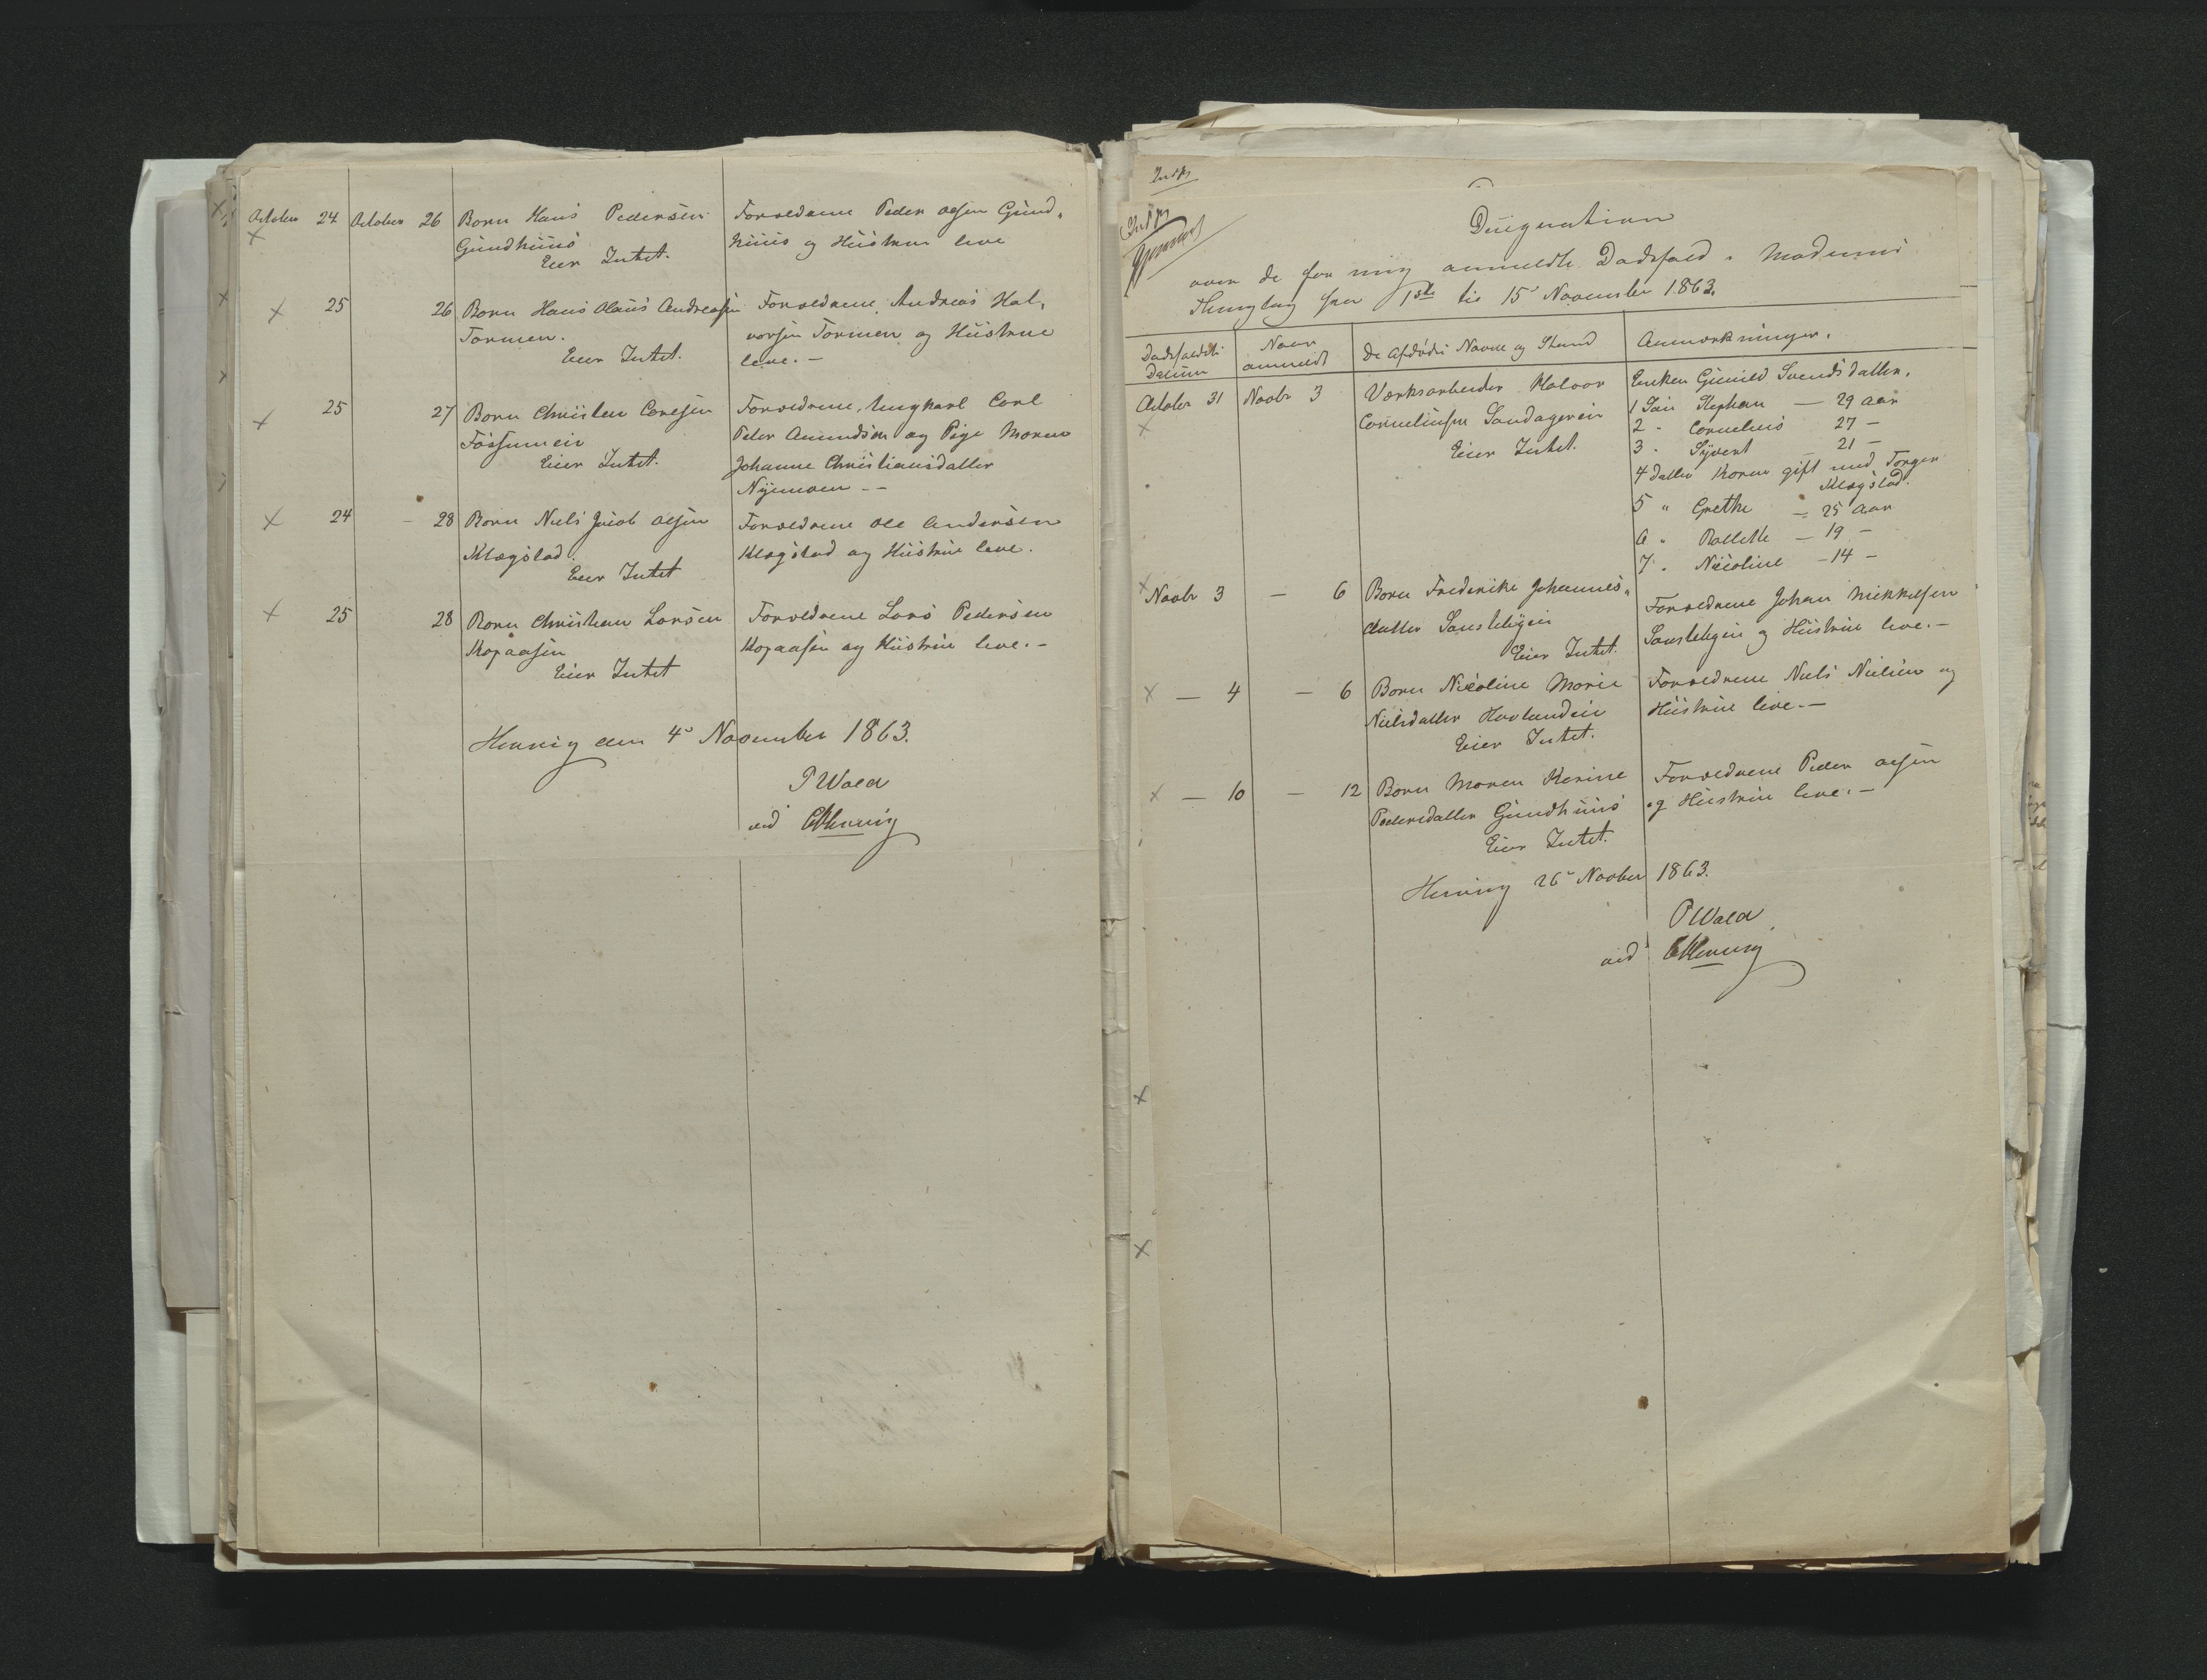 October 24 October 26 Barn Hans Pedersen Forældrene Peder Olsen Gund-
Gundhuus huus og Hustrue leve
Eier Intet.
25 26 Barn Hans Olaus Andreasen Forældrene Andreas Hal-
Tormoen. vorsen Tormoen og Hustrue
Eier Intet. leve. —
25 27 Barn Christen Carlsen Forældrene, Ungkarl Carl
Fossumeie Peter Amundsen og Pige Maren
Eier Intet. Johanne Christiansdatter
Nymoen —
24 — 28 Barn Niels Jacob Olsen Forældrene Ole Andersen
Klægstad. Klogstad og Hustrue leve.
Eier Intet
25 28 Barn Christian Larsen Forældrene Lars Pedersen
Kopaasen Kopaasen og Hustrue leve. —
Eier Intet
Hennig den 4de November 1863.
P Wold
ved CHennig
Indf
Indf
Designation
over de for mig anmeldte Dødsfald i Modums
Thinglag fra 1ste til 15de November 1863.
Dødsfaldets Naar De Afdødes Navne og Stand Anmærkninger.
Datum anmeldt
October 31 Novbr 3 Værksarbeider Halvor Enken Gunild Svendsdatter.
Corneliusen Sandagereie 1 Søn Stephan — 29 Aar
Eier Intet. 2 " Cornelius 27 —
3 " Syvert 21 —
4 datter Karen gift med Torger
Klogstad.
5 " Grethe — 25 Aar
6 " — 19 —
7 " Nicoline — 14 —
Novbr 3 — 6 Barn Frederikke Johannes- Forældrene Johan Mikkelsen
datter og Hustrue leve. —
Eier Intet.
— 4 — 6 Barn Nicoline Marie Forældrene Niels Nielsen og
Nielsdatter Hovlandeie Hustrue leve. —
Eier Intet.
— 10 — 12 Barn Maren Karine Forældrene Peder Olsen
Pedersdatter Gundhuus og Hustrue leve. —
Eier Intet.
Hennig 26de Novber 1863.
P Wold
ved CHennig